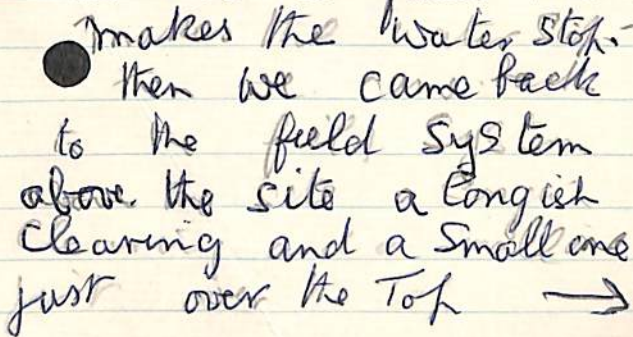 makes the water stop.
then we came back
to the field system
above. the site a longish
clearing and a small one
just over the Top →